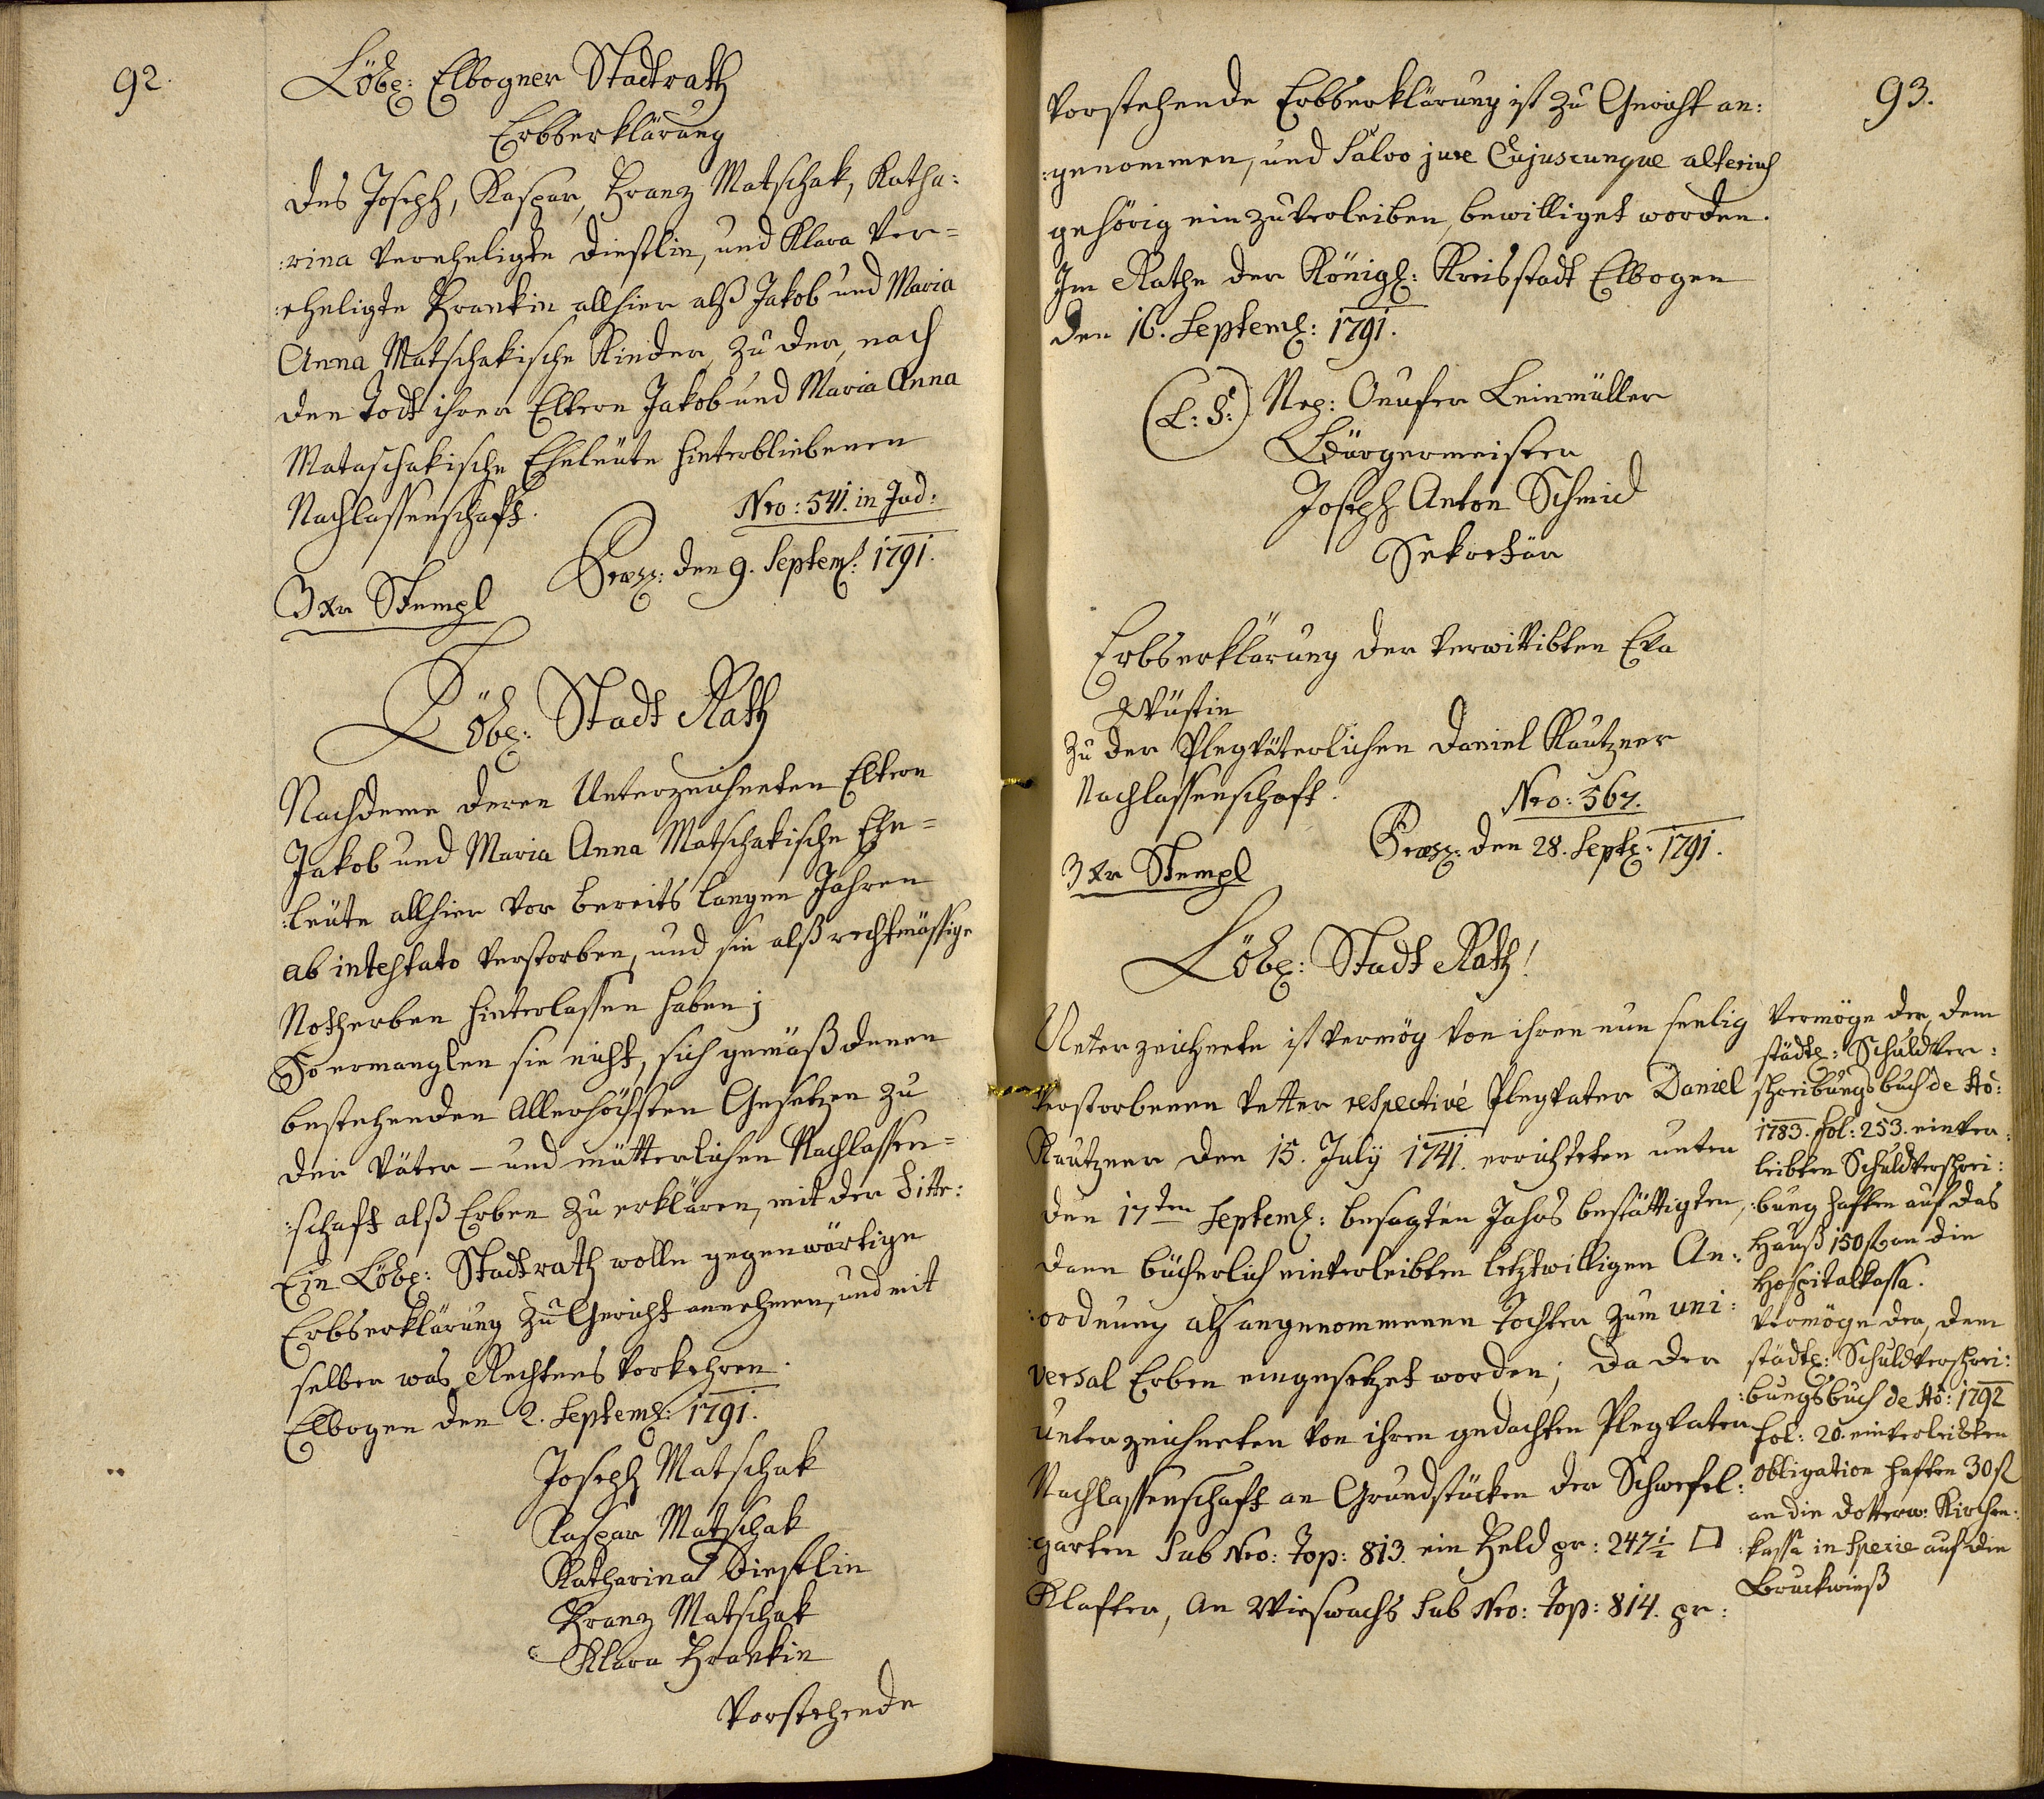 92.
Löbl: Elbogner Stadtrath
Erbserklärung
des Joseph, Kaspar, Franz Matschak, Katha:
:rina verehligte Diestlin, und Klara ver=
:ehligte Frankin allhier alß Jakob und Maria
Anna Matschakische Kinder, zu der, nach
den Todt ihrer Eltern Jakob und Maria Anna
Mataschakische Eheleüte hinterbliebenen
Nachlassenschaft.
Nro: 541. in Jud:
Præs: den 9. Septem: 1791.
3 xr Stempl
Löbl: Stadt Rath
Nachdeme deren Unterzeichneten Eltern
Jakob und Maria Anna Matschakische Ehe=
:leüte allhier vor bereits langen Jahren
ab intestato verstorben, und sie alß rechtmässige
Notherben hinterlassen haben;
So ermanglen sie nicht, sich gemäß denen
bestehenden Allerhöchsten Gesetzen zu
der Väter- und mütterlichen Nachlassen=
:schaft alß Erben zu erklären, mit der Bitte:
Ein Löbl: Stadtrath wolle gegenwärtige
Erbserklärung zu Gericht annehmen, und mit
selber was Rechtens vorkehren.
Elbogen den 2. Septeml: 1791.
Joseph Matschak
Kaspar Matschak
Katharina Diestlin
Franz Matschak
Klara Frankin
Vorstehende
93.
Vorstehende Erbserklärung ist zu Gericht an:
:genommen, und Salvo jure Cujuscunque alterius
gehörig einzuverleiben, bewilliget worden.
Im Rathe der Königl: Kreisstadt Elbogen
den 16. Septeml: 1791.
(L: S:) Nep: Onufer Leinmüller
Bürgermeister
Joseph Anton Schmid
Sekretär
Erbserklärung der verwittibten Eva
Wüstin
Zu der Plegväterlichen Daniel Kautzner
Nachlassenschaft.
Nro: 567.
Præs: den 28. Septl: 1791.
3 xr Stempl
Löbl: Stadt Rath!
Unterzeichnete ist vermög von ihren nun seelig
verstorbenen Vetter respective Plegvater Daniel
Kautzner den 15. July 1741. errichteten unter
den 17ten Septeml: besagten Jahrs bestättigten,
dann bücherlich einverleibten letztwilligen An:
:ordnung als angenommenen Tochter zum uni:
versal Erben eingesetzet worden; da der
Unterzeichneten von ihren gedachten Plegvater
Nachlassenschaft an Grundstücken der Schwefel:
:garten Sub Nro: Top: 813. ein Feld pr: 247½ □
Klafter, An Wieswachs Sub Nro: Top: 814. pr:
Vermöge der, dem
städtl: Schuldver:
schreibungsbuch de Ao:
1783. fol: 253. einver:
leibten Schuldverschrei:
:bung haften auf das
Hauß 150 fl an die
Hospitalkassa.
Vermöge der, dem
städtl: Schuldverschrei:
:bungsbuch de Ao: 1792
fol: 20. einverleibten
Obligation haften 30 fl
an die Dotterw: Kirchen:
:kassa in Specie auf die
Bruckwieß